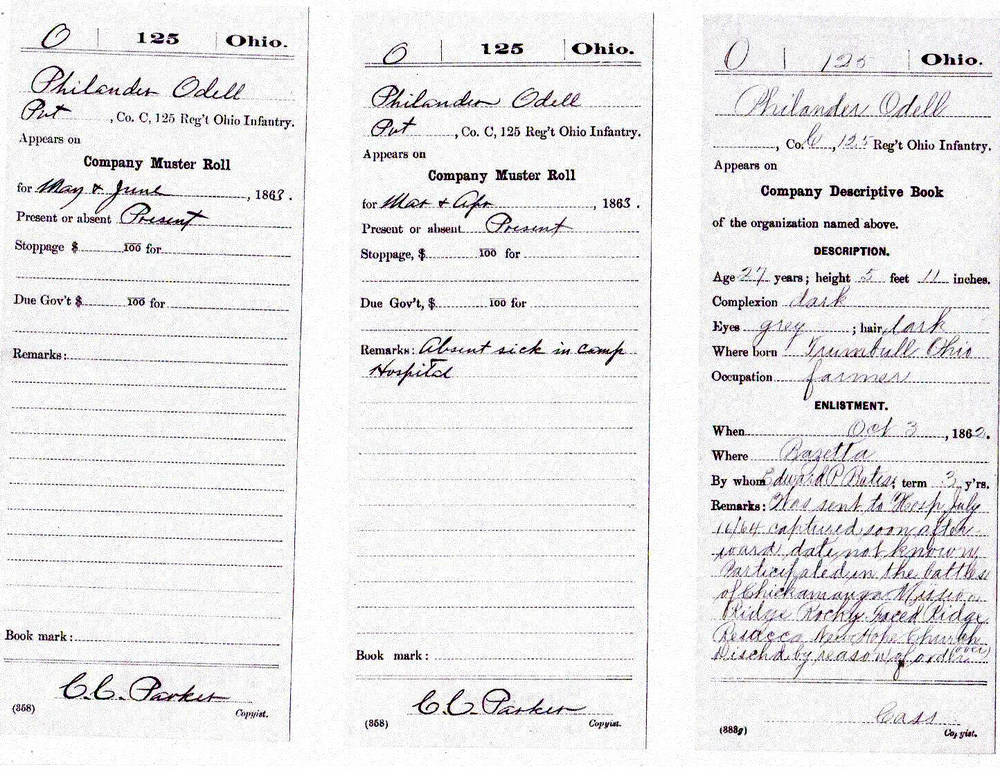 O | 125 | Ohio.
Philander Odell
Pvt, Co. C, 125 Reg't Ohio Infantry.
Appears on
Company Muster Roll
for May & June, 1863.
Present or absent Present
Stoppage $ 100 for
Due Gov't $ 100 for
Remarks:
Book mark:
C. C. Parker
(358) Copyist.
O | 125 | Ohio.
Philander Odell
Pvt, Co. C, 125 Reg't Ohio Infantry.
Appears on
Company Muster Roll
for Mar & Apr, 1863.
Present or absent Present
Stoppage, $ 100 for
Due Gov't, $ 100 for
Remarks: Absent sick in camp
Hospital
Book mark:
C. C. Parker
(358) Copyist.
O | 125 | Ohio.
Philander Odell
, Co. C, 125 Reg't Ohio Infantry.
Appears on
Company Descriptive Book
of the organization named above.
DESCRIPTION.
Age 27 years; height 5 feet 11 inches.
Complexion dark
Eyes grey; hair dark
Where born Trumbull Ohio
Occupation farmer
ENLISTMENT.
When Oct 3, 1862.
Where Bazetta
By whom Edward P Bates; term 3 y'rs.
Remarks: Was sent to Hosp July
/64 captured soon after
ward date not known
Participated in the battles
of Chickamauga Mission
Ridge Rocky Faced Ridge
Resacca New Hope Church
Dischd by reason of (over)
Cass
(383g) Copyist.